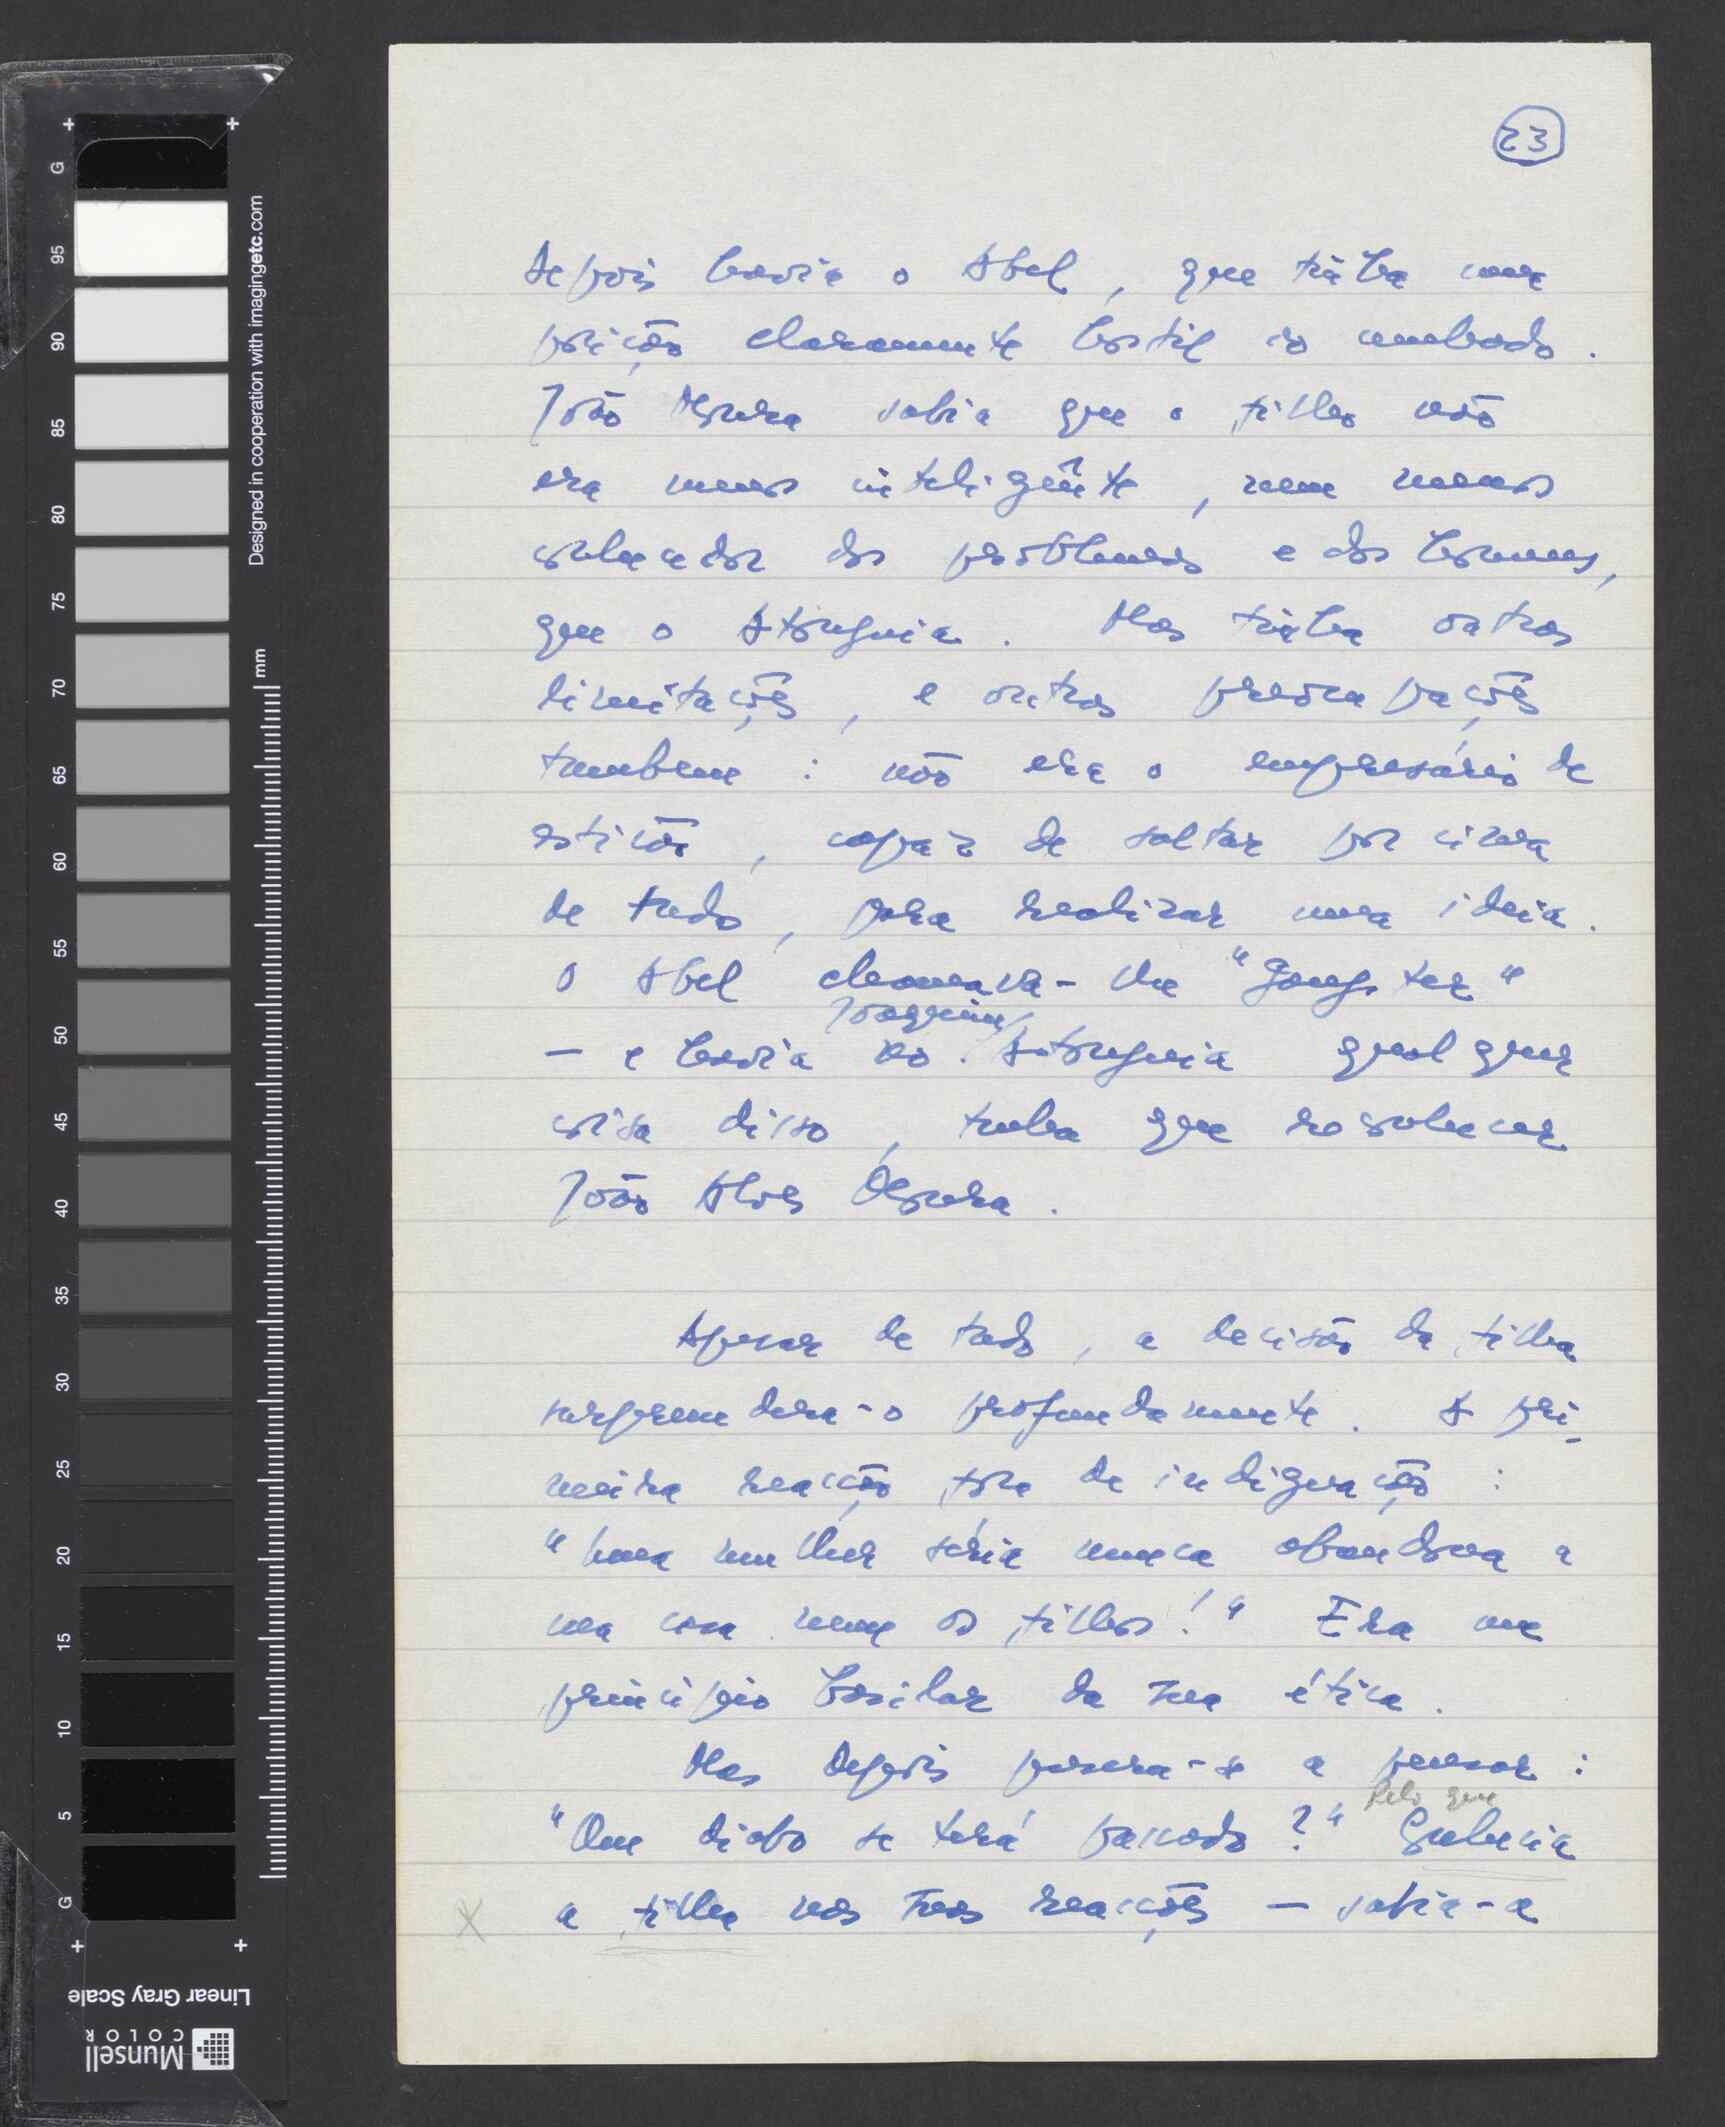 23
Depois havia o Abel, que tinha uma
posição claramente hostil ao cunhado.
João Moura sabia que o filho não
era menos inteligente, nem menos
conhecedor dos problemas e dos homens,
que o Atouguia. Mas tinha outras
limitações, e outras preocupações
tambem: não era o empresário de
esticão, capaz de saltar por cima
de tudo, para realizar uma ideia.
O Abel chamava-lhe "gangster"
Joaquim
— e havia no Atouguia qualquer
coisa disso, tinha que reconhecer
João Alves Moura.
Apesar de tudo, a decisão da filha
surpreendera-o profundamente. A pri-
meira reacção fora de indignação:
"Uma mulher séria nunca abandona a
sua casa nem os filhos!" Era um
princípio basilar da sua ética.
Mas depois pusera-se a pensar:
Pelo que
"Que diabo se terá passado?" Conhecia
x a filha nas suas reacções — sabia-a
G
95
90
85
80
75
70
65
60
55
50
45
40
35
30
25
20
15
10
5
G
Designed in cooperation with imagingetc.com
mm
Linear Gray Scale
Munsell
COLOR